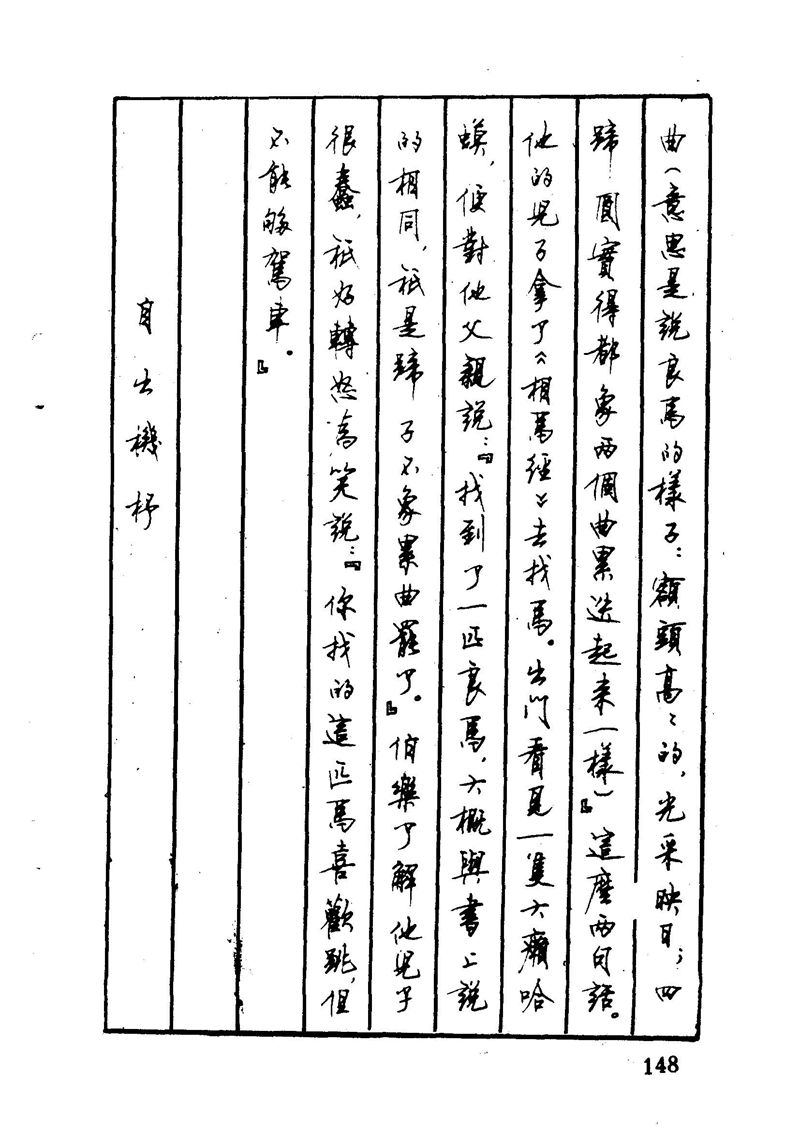 曲（意思是說良馬的樣子：額頭高〻的，光采映目；四
蹄 圓實得都象兩個曲累迭起來一樣）』這麼兩句話。
他的兒子拿了《相馬經》去找馬。出門看見一隻大癩哈
蟆，便對他父親說：『找到了一匹良馬，大概與書上說
的相同，祇是蹄 子不象累曲罷了。』伯樂了解他兒子
很蠢，祇好轉怒為笑說：『你找的這匹馬喜歡跳，但
不能夠駕車。』
自出機杼
148